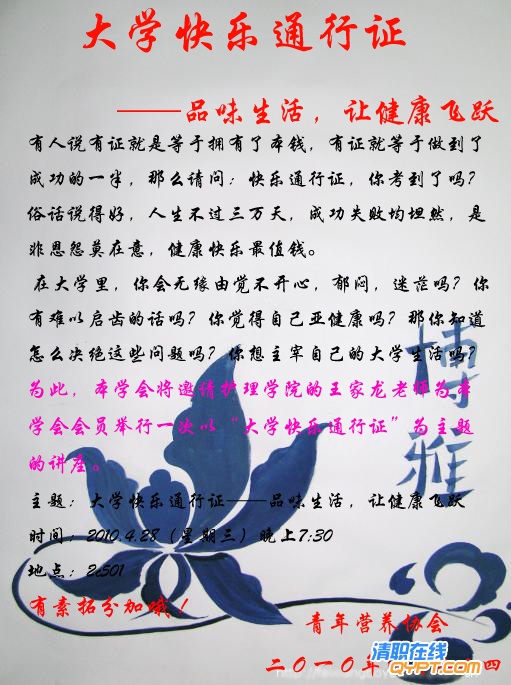 大学快乐通行证
——品味生活，让健康飞跃
有人说有证就是等于拥有了本钱，有证就等于做到了
成功的一半，那么请问：快乐通行证，你考到了吗？
俗话说得好，人生不过三万天，成功失败均坦然，是
非恩怨莫在意，健康快乐最值钱。
在大学里，你会无缘由觉不开心，郁闷，迷茫吗？你
有难以启齿的话吗？你觉得自己亚健康吗？那你知道
怎么决绝这些问题吗？你想主宰自己的大学生活吗？
为此，本学会将邀请护理学院的王家龙老师为本
学会会员举行一次以“大学快乐通行证”为主题
的讲座。
主题：大学快乐通行证——品味生活，让健康飞跃
时间：2010.4.28（星期三）晚上7:30
地点：2c501
有素拓分加哦！
博雅
青年营养协会
二〇一〇年
四
清职在线
QYPT.COM